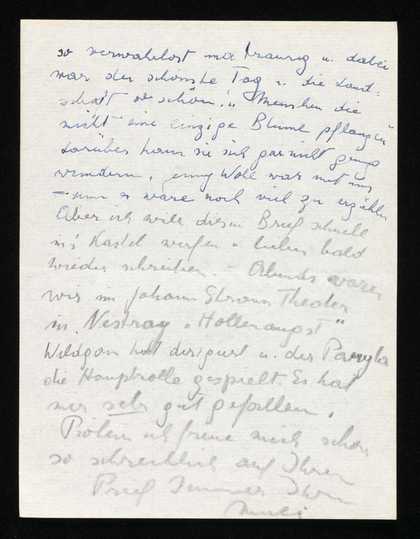 so verwahrlost war traurig u. dabei
war der schönste Tag u. die Land-
schaft so schön!" Menschen die
nicht eine einzige Blume pflanzen
darüber kann sie sich gar nicht genug
wundern, Jenny Woll war mit uns
– nun es wäre noch viel zu erzählen
Aber ich will diesen Brief schnell
in's Kastel werfen u. lieber bald
wieder schreiben. – Abends waren
wir im Johann Strauss Theater
in Nestroy "Höllenangst"
Wildgans hat dirigiert u. der Pamyla
die Hauptrolle gespielt. Es hat
mir sehr gut gefallen.
ich freue mich schon
so schrecklich auf Ihren
Brief Immer Ihre